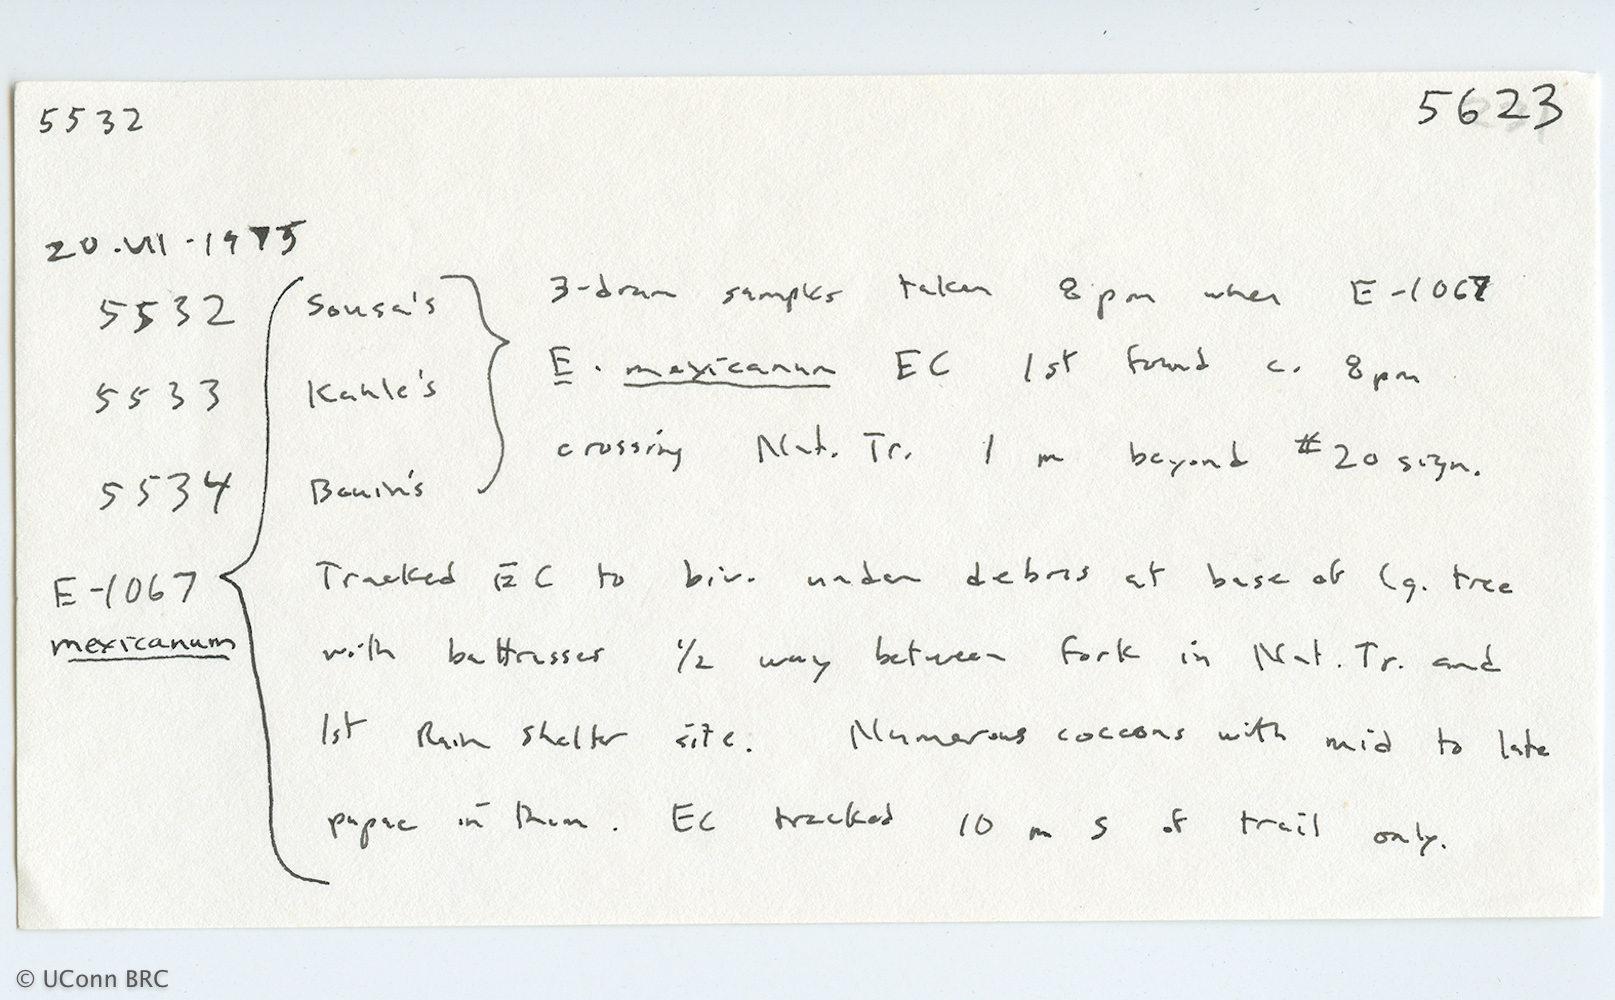 5532 5623
20.VII.1975
5532 Sousa's 3-dram samples taken 8 pm when E-1067
E. mexicanum EC 1st found c. 8 pm
5533 Kahle's
crossing Nat. Tr. 1 m beyond #20 sign.
5534 Bouin's
E-1067 Tracked EC to biv. under debris at base of lg. tree
mexicanum with buttresses 1/2 way between fork in Nat. Tr. and
1st Rain shelter site. Numerous cocoons with mid to late
pupae in them. EC tracked 10 m S of trail only.
© UConn BRC